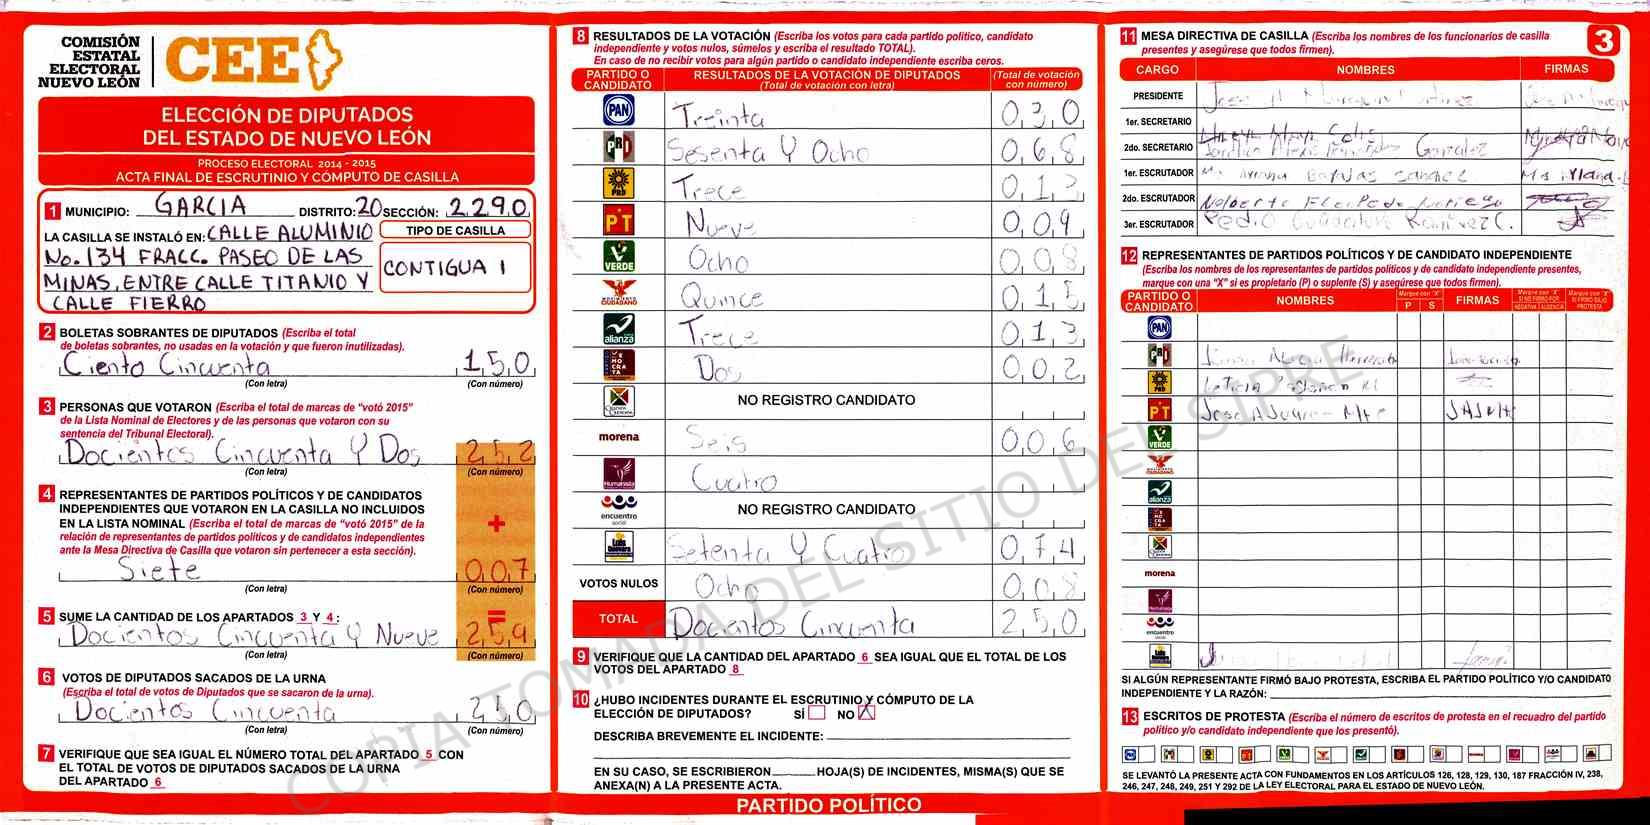 COMISIÓN
ESTATAL
ELECTORAL
NUEVO LEÓN
CEE
ELECCIÓN DE DIPUTADOS
DEL ESTADO DE NUEVO LEÓN
PROCESO ELECTORAL 2014 - 2015
ACTA FINAL DE ESCRUTINIO Y CÓMPUTO DE CASILLA
1 MUNICIPIO: GARCIA DISTRITO: 20 SECCIÓN: 2290
LA CASILLA SE INSTALÓ EN: CALLE ALUMINIO
No. 134 FRACC. PASEO DE LAS
MINAS, ENTRE CALLE TITANIO Y
CALLE FIERRO
TIPO DE CASILLA
CONTIGUA 1
2 BOLETAS SOBRANTES DE DIPUTADOS (Escriba el total
de boletas sobrantes, no usadas en la votación y que fueron inutilizadas).
Ciento Cincuenta 150
(Con letra) (Con número)
3 PERSONAS QUE VOTARON (Escriba el total de marcas de “votó 2015”
de la Lista Nominal de Electores y de las personas que votaron con su
sentencia del Tribunal Electoral).
Docientos Cincuenta Y Dos 252
(Con letra) (Con número)
4 REPRESENTANTES DE PARTIDOS POLÍTICOS Y DE CANDIDATOS
INDEPENDIENTES QUE VOTARON EN LA CASILLA NO INCLUIDOS
EN LA LISTA NOMINAL (Escriba el total de marcas de “votó 2015” de la
relación de representantes de partidos políticos y de candidatos independientes
ante la Mesa Directiva de Casilla que votaron sin pertenecer a esta sección).
+
Siete 007
(Con letra) (Con número)
=
5 SUME LA CANTIDAD DE LOS APARTADOS 3 Y 4:
Docientos Cincuenta Y Nueve 259
(Con letra) (Con número)
6 VOTOS DE DIPUTADOS SACADOS DE LA URNA
(Escriba el total de votos de Diputados que se sacaron de la urna).
Docientos Cincuenta 250
(Con letra) (Con número)
7 VERIFIQUE QUE SEA IGUAL EL NÚMERO TOTAL DEL APARTADO 5 CON
EL TOTAL DE VOTOS DE DIPUTADOS SACADOS DE LA URNA
DEL APARTADO 6
8 RESULTADOS DE LA VOTACIÓN (Escriba los votos para cada partido político, candidato
independiente y votos nulos, súmelos y escriba el resultado TOTAL).
En caso de no recibir votos para algún partido o candidato independiente escriba ceros.
PARTIDO O CANDIDATO RESULTADOS DE LA VOTACIÓN DE DIPUTADOS (Total de votación con letra) (Total de votación con número)
PAN Treinta 030
PRI Sesenta Y Ocho 068
PRD Trece 013
PT Nueve 009
VERDE Ocho 008
MOVIMIENTO CIUDADANO Quince 015
alianza Trece 013
DEMOCRATA Dos 002
NO REGISTRO CANDIDATO
morena Seis 006
Humanista Cuatro
encuentro social NO REGISTRO CANDIDATO
Setenta Y Cuatro 074
VOTOS NULOS Ocho 008
TOTAL Docientos Cincuenta 250
9 VERIFIQUE QUE LA CANTIDAD DEL APARTADO 6 SEA IGUAL QUE EL TOTAL DE LOS
VOTOS DEL APARTADO 8
10 ¿HUBO INCIDENTES DURANTE EL ESCRUTINIO Y CÓMPUTO DE LA
ELECCIÓN DE DIPUTADOS? SÍ NO X
DESCRIBA BREVEMENTE EL INCIDENTE:
EN SU CASO, SE ESCRIBIERON HOJA(S) DE INCIDENTES, MISMA(S) QUE SE
ANEXA(N) A LA PRESENTE ACTA.
PARTIDO POLÍTICO
11 MESA DIRECTIVA DE CASILLA (Escriba los nombres de los funcionarios de casilla
presentes y asegúrese que todos firmen).
3
CARGO NOMBRES FIRMAS
PRESIDENTE Jose
1er. SECRETARIO
2do. SECRETARIO Gonzalez
1er. ESCRUTADOR Sanchez
2do. ESCRUTADOR
3er. ESCRUTADOR Pedro Guadalupe Ramirez C.
12 REPRESENTANTES DE PARTIDOS POLÍTICOS Y DE CANDIDATO INDEPENDIENTE
(Escriba los nombres de los representantes de partidos políticos y de candidato independiente presentes,
marque con una “X” si es propietario (P) o suplente (S) y asegúrese que todos firmen).
PARTIDO O CANDIDATO NOMBRES P S FIRMAS
PAN
PRI
PRD Leticia
PT Jose A Juarez
VERDE
alianza
morena
encuentro social
SI ALGÚN REPRESENTANTE FIRMÓ BAJO PROTESTA, ESCRIBA EL PARTIDO POLÍTICO Y/O CANDIDATO
INDEPENDIENTE Y LA RAZÓN:
13 ESCRITOS DE PROTESTA (Escriba el número de escritos de protesta en el recuadro del partido
político y/o candidato independiente que los presentó).
SE LEVANTÓ LA PRESENTE ACTA CON FUNDAMENTOS EN LOS ARTÍCULOS 126, 128, 129, 130, 187 FRACCIÓN IV, 238,
246, 247, 248, 249, 251 Y 292 DE LA LEY ELECTORAL PARA EL ESTADO DE NUEVO LEÓN.
COPIA TOMADA DEL SITIO DEL SIPRE